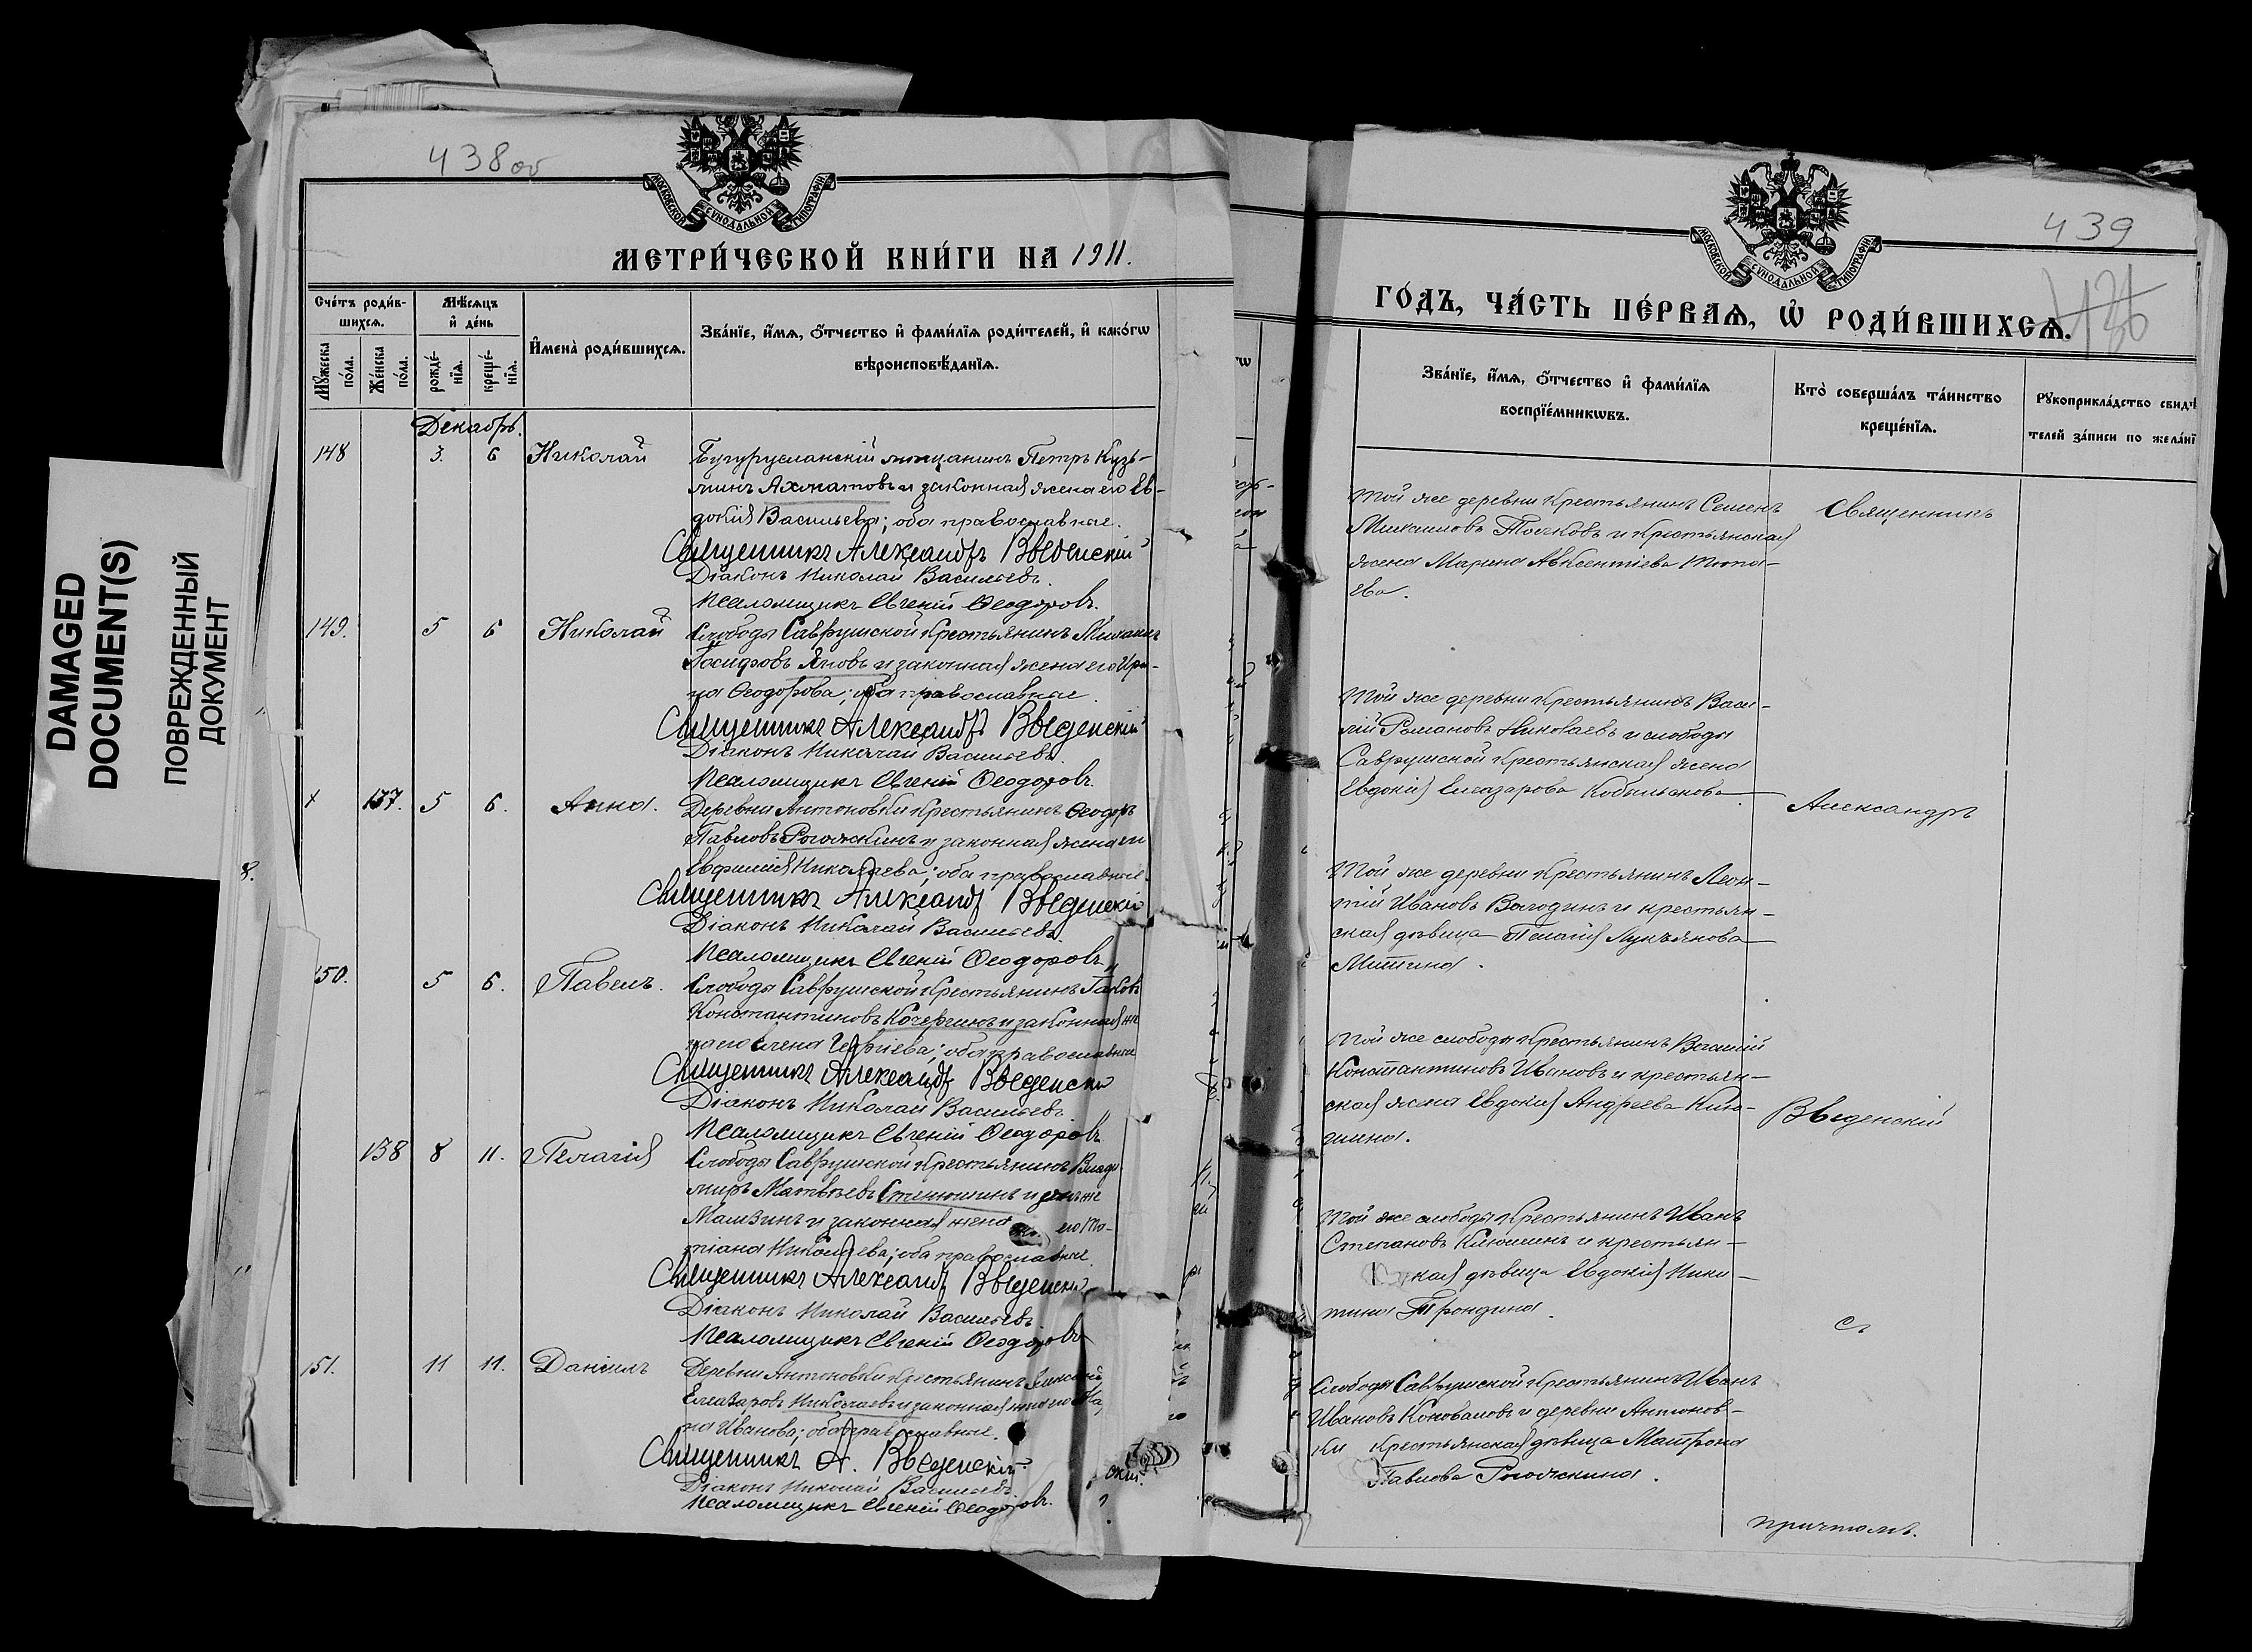 DAMAGED
DOCUMENT(S)
ПОВРЕЖДЕННЫЙ
ДОКУМЕНТ
438 об
МОСКОВСКОЙ СѴНОДАЛЬНОЙ ТИПОГРАФІИ
МЕТРИ́ЧЕСКОЙ КНИ́ГИ НА 1911.
Сче́тъ роди́в-
шихсѧ.
Мѣ́сѧцъ
и҆ де́нь
Мꙋ́жеска
по́ла.
Же́нска
по́ла.
рожде́-
нїѧ.
креще́-
нїѧ.
И҆мена̀ роди́вшихсѧ.
Зва́нїе, и҆́мѧ, ѻ҆́тчество и҆ фами́лїѧ роди́телей, и҆ како́гѡ
вѣроисповѣ́данїѧ.
Декабрь.
148 3. 6 Николай Бугурусланскій мѣщанинъ Петръ Кузь-
минъ Ахматовъ и законная жена его Ев-
докія Васильева; оба православные.
Священникъ Александръ Введенскій
Діаконъ Николай Васильевъ.
Псаломщикъ Евгеній Ѳеодоровъ.
149. 5 6 Николай Слободы Саврушской крестьянинъ Михаилъ
Іосифовъ Яновъ и законная жена его Ири-
на Ѳеодорова; оба православные.
Священникъ Александръ Введенскій
Діаконъ Николай Васильевъ.
Псаломщикъ Евгеній Ѳеодоровъ.
137. 5 6. Анна. Деревни Антоновки крестьянинъ Ѳеодоръ
Павловъ Рогожкинъ и законная жена его
Евфимія Николаева; оба православные.
Священникъ Александръ Введенскій
Діаконъ Николай Васильевъ.
Псаломщикъ Евгеній Ѳеодоровъ.
150. 5 6. Павелъ. Слободы Саврушской крестьянинъ Іаковъ
Константиновъ Кочергинъ и законная же
на его Елена Георгіева; оба православные
Священникъ Александръ Введенскій
Діаконъ Николай Васильевъ.
Псаломщикъ Евгеній Ѳеодоровъ.
138 8 11. Пелагія Слободы Саврушской крестьянинъ Влади
миръ Матвѣевъ Стенюшинъ и онъ же
Мамзинъ и законная жена его Та-
тіана Николаева; оба православные.
Священникъ Александръ Введенскій
Діаконъ Николай Васильевъ
Псаломщикъ Евгеній Ѳеодоровъ
151. 11 11. Даніилъ Деревни Антоновки крестьянинъ
Елеазаровъ Николаевъ и законная жена его
Иванова; оба православные.
Священникъ А. Введенскій.
Діаконъ Николай Васильевъ
Псаломщикъ Евгеній Ѳеодоровъ.
439
МОСКОВСКОЙ СѴНОДАЛЬНОЙ ТИПОГРАФІИ
ГО́ДЪ, ЧА́СТЬ ПЕ́РВАѦ, Ѡ҆ РОДИ́ВШИХСѦ.
Зва́нїе, и҆́мѧ, ѻ҆́тчество и҆ фами́лїѧ
воспрїе́мникѡвъ.
Кто̀ соверша́лъ та́инство
креще́нїѧ.
Рꙋкоприкла́дство свидѣ́
телей за́писи по жела́нї
Той же деревни крестьянинъ Семенъ
Михаиловъ Точковъ и крестьянская
жена Марина Авксентіева Тота-
ева.
Священникъ
Той же деревни крестьянинъ Васи-
лій Романовъ Николаевъ и слободы
Саврушской крестьянская жена
Евдокія Елеазарова Кобылскова.
Александръ
Той же деревни крестьянинъ Леон-
тій Ивановъ Володинъ и крестьян-
ская дѣвица Пелагія Лукъянова
Митина.
Той же слободы крестьянинъ Василій
Константиновъ Ивановъ и крестьян-
ская жена Евдокія Андреева Клю-
шина.
Введенскій
Той же слободы крестьянинъ Иванъ
Степановъ Клюшинъ и крестьян-
ская дѣвица Евдокія Ники-
тина Трондина.
съ
Слободы Саврушской крестьянинъ Иванъ
Ивановъ Коноваловъ и деревни Антонов-
ки крестьянская дѣвица Матрона
Павлова Рогожкина.
причтомъ.